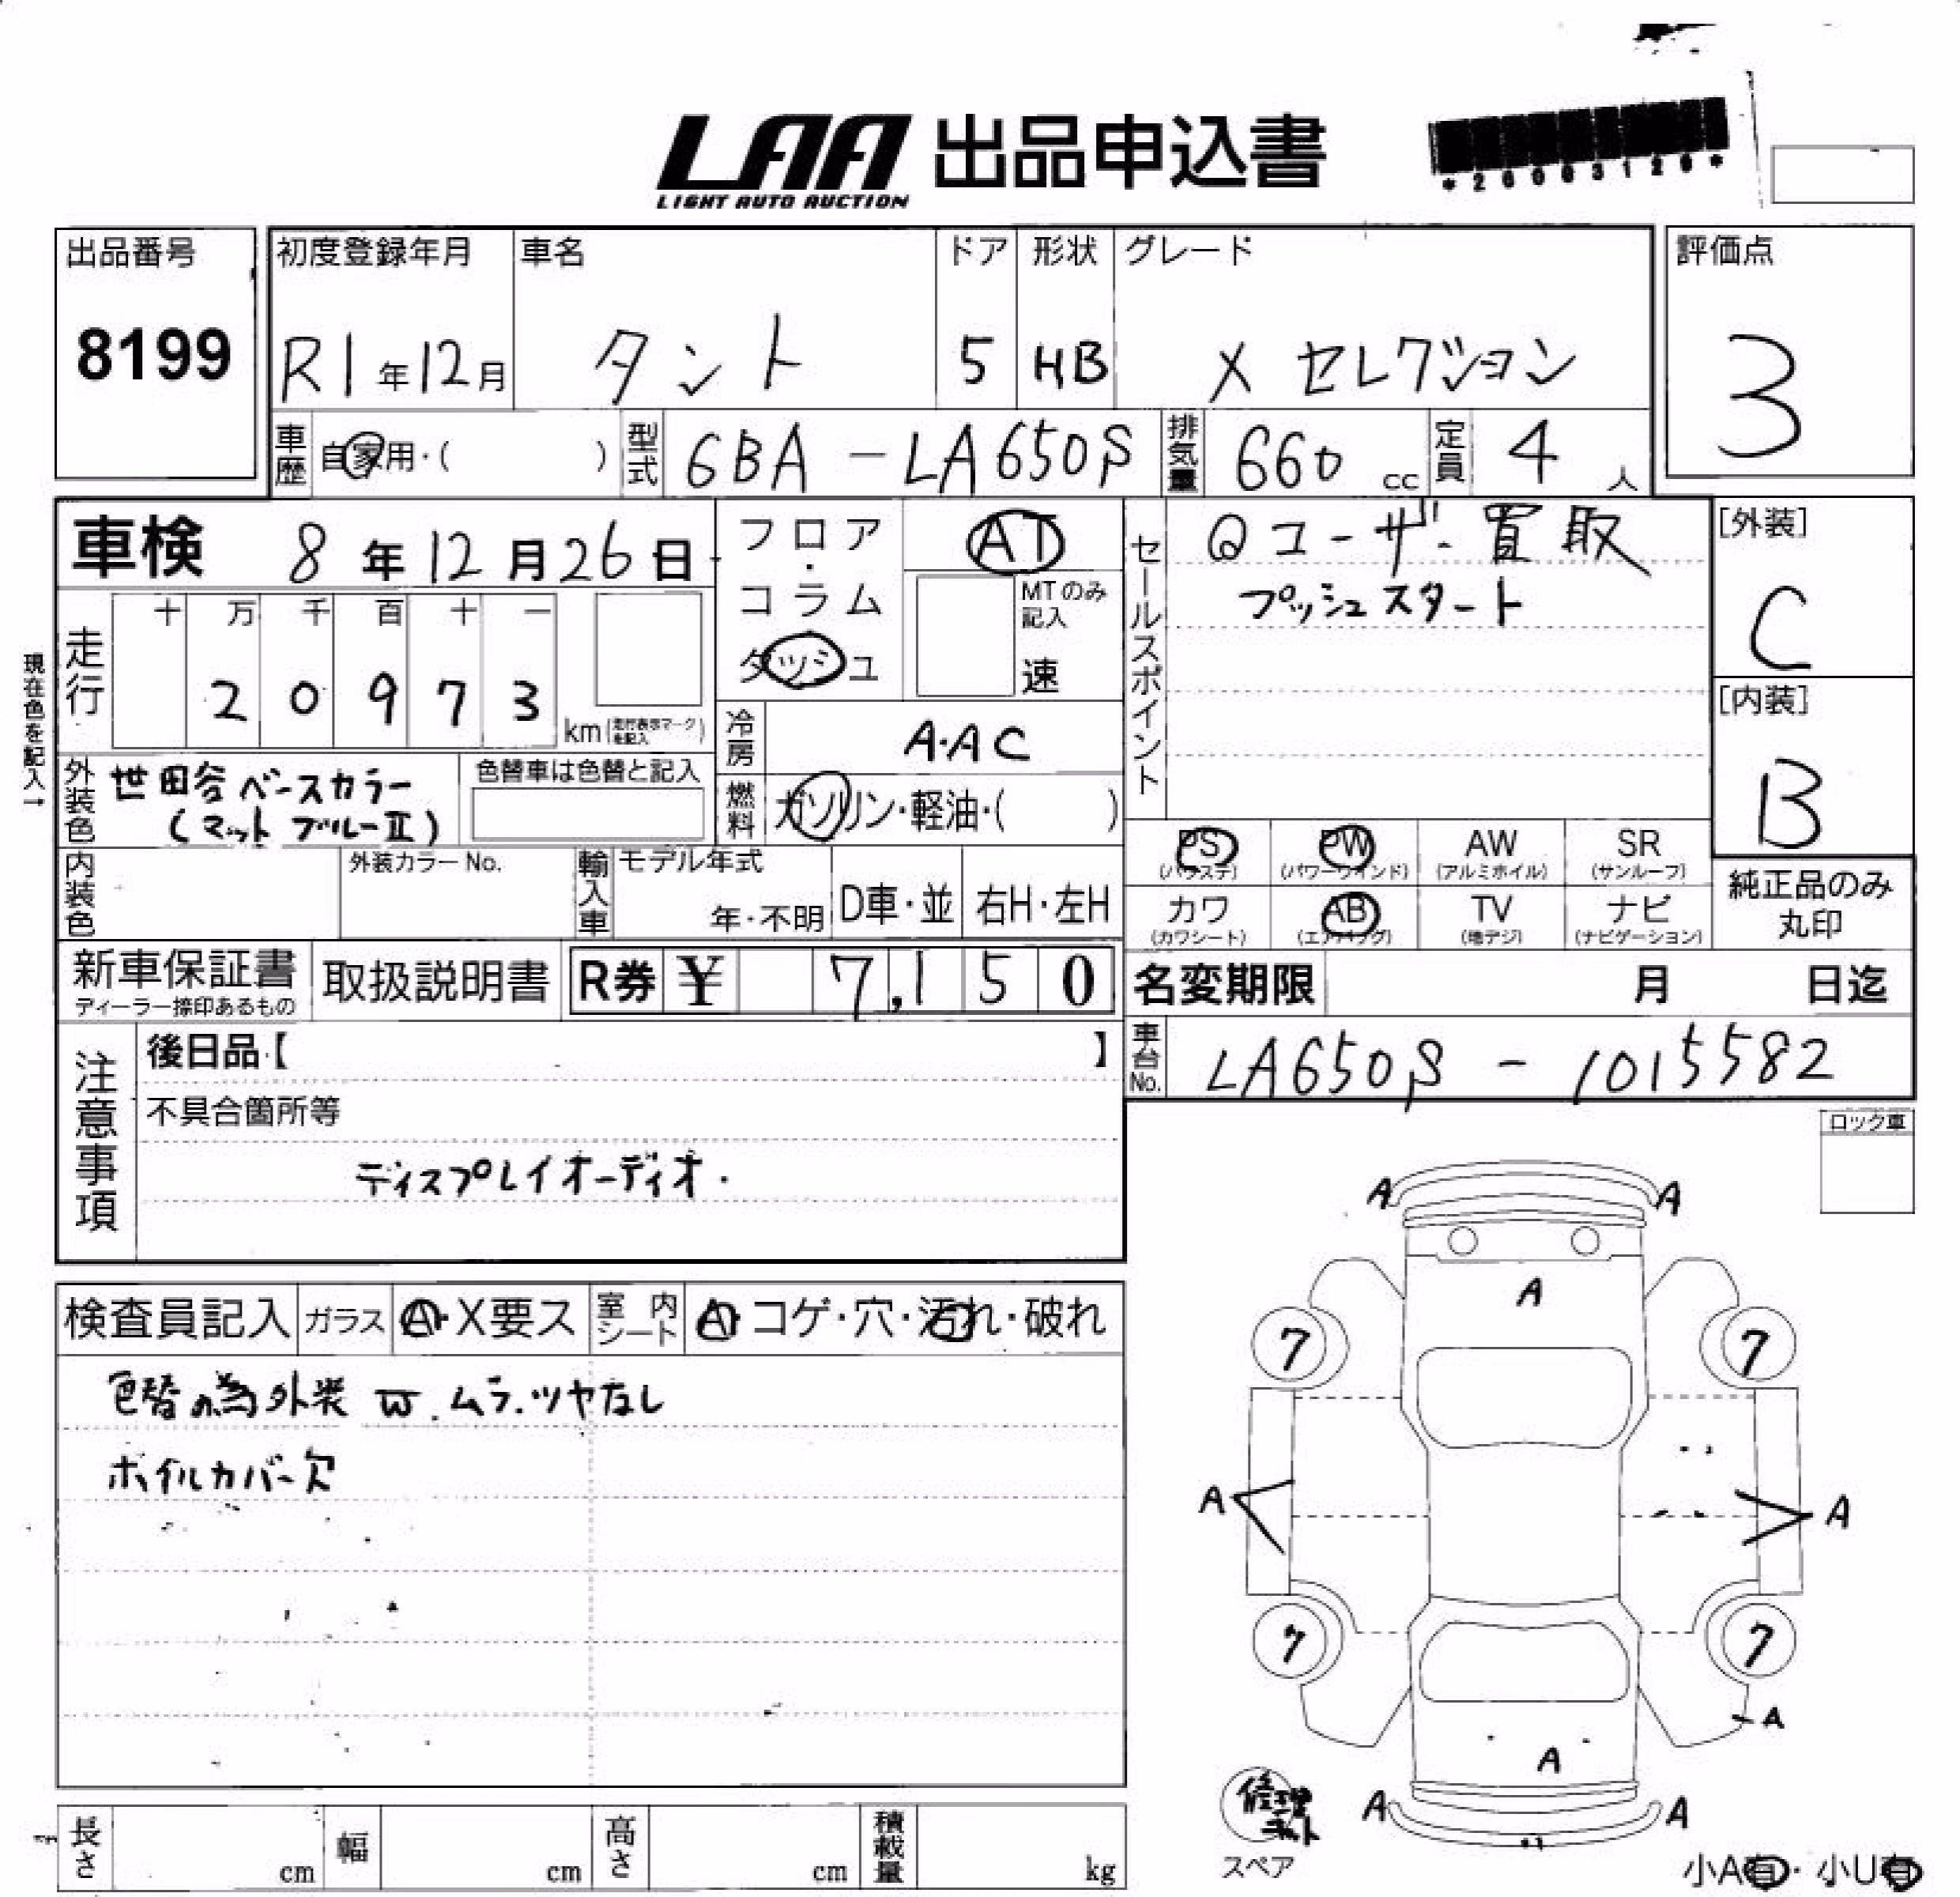 LAA 出品申込書
LIGHT AUTO AUCTION
*26003126*
出品番号
8199
初度登録年月
R1年12月
車名
タント
ドア
5
形状
HB
グレード
X セレクション
評価点
3
車歴 自家用・( )
型式 6BA-LA650S
排気量 660 cc
定員 4 人
車検 8年12月26日
フロア・コラム
ダッシュ
AT
MTのみ記入
速
セールスポイント
ユーザー買取
プッシュスタート
[外装]
C
[内装]
B
現在色を記入→
走行
十 万 千 百 十 一
2 0 9 7 3
km(走行表示マークを記入)
冷房 A.AC
外装色 世田谷ベースカラー
(マットブルーⅡ)
色替車は色替と記入
燃料 ガソリン・軽油・( )
PS (パワステ)
PW (パワーウインド)
AW (アルミホイル)
SR (サンルーフ)
カワ (カワシート)
AB (エアバッグ)
TV (地デジ)
ナビ (ナビゲーション)
純正品のみ
丸印
内装色
外装カラーNo.
輸入車
モデル年式
年・不明
D車・並
右H・左H
新車保証書
ディーラー捺印あるもの
取扱説明書
R券 ¥ 7,150
名変期限 月 日迄
車台No. LA650S - 1015582
注意事項
後日品【 】
不具合箇所等
ディスプレイオーディオ.
ロック車
検査員記入
ガラス A・X要ス
室内シート A・コゲ・穴・汚れ・破れ
色替の為外装 W.ムラ.ツヤなし
ホイルカバー欠
A A
A
7 7
A A
7 7
A
A
A A
修理キット
スペア
小A有・小U有
長さ cm
幅 cm
高さ cm
積載量 kg